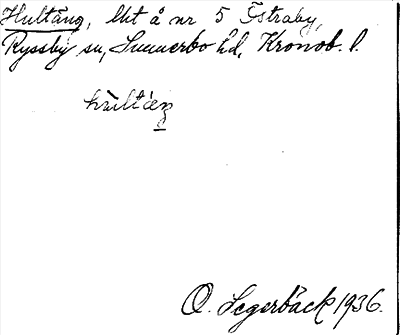 Hultäng, lht å nr 5 Tstraby,
Ryssby sn, Sunnerbo hd, Kronob. l.
hùltæŋ
O. Segerbäck 1936.